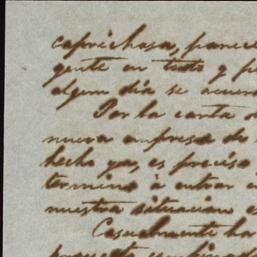 caprichosa, parece
gente en todo y p
algun dia se acuer
Por la carta d
nueva empresa de
hecho ya, es preciso
termino à entrar e
nuestra situacion e
Casualmente ha